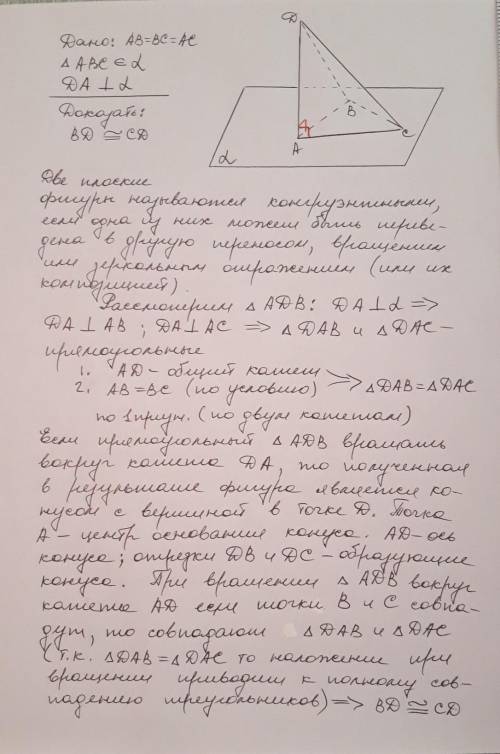 Дано: AB=BC=AC
△ABC ∈ α
DA ⊥ α
Доказать:
BD ≅ CD
D
B
A
C
α
Две плоские
фигуры называются конгруэнтными,
если одна из них может быть переве-
дена в другую переносом, вращением
или зеркальным отражением (или их
композицией).
Рассмотрим △ADB: DA⊥α ⟹
DA⊥AB; DA⊥AC ⟹ △DAB и △DAC –
прямоугольные
1. AD – общий катет
2. AB=BC (по условию) ⟹ △DAB=△DAC
по 1 призн. (по двум катетам)
Если прямоугольный △ADB вращать
вокруг катета DA, то полученная
в результате фигура является ко-
нусом с вершиной в точке D. Точка
A – центр основания конуса. AD – ось
конуса; отрезки DB и DC – образующие
конуса. При вращении △ADB вокруг
катета AD если точки B и C совпа-
дут, то совпадают △DAB и △DAC
(т.к. △DAB=△DAC то наложении при
вращении приводит к полному сов-
падению треугольников) ⟹ BD ≅ CD